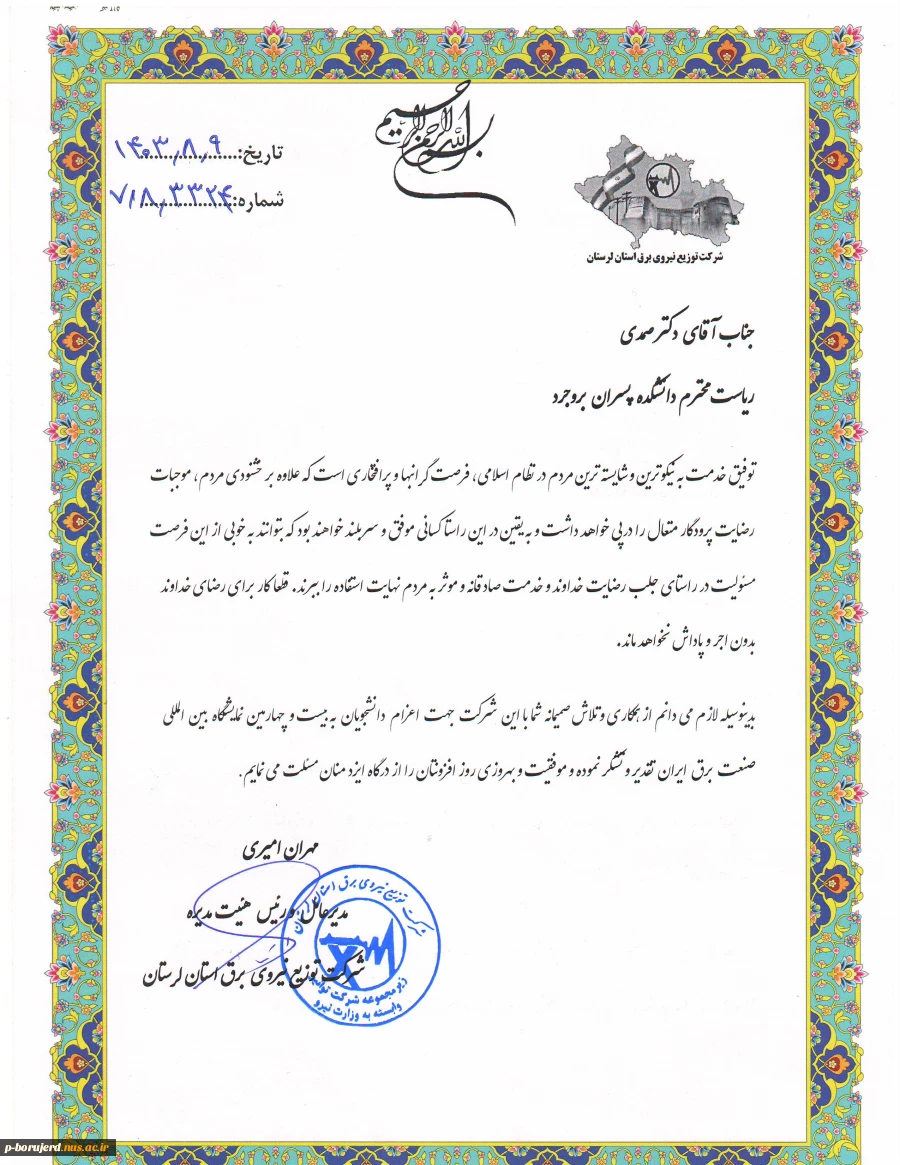 بسم الله الرحمن الرحیم
تاریخ: ۱۴۰۳/۸/۹
شماره: ۷۱۸/۳۳۲۴
شرکت توزیع نیروی برق استان لرستان
جناب آقای دکتر صمدی
ریاست محترم دانشکده پسران بروجرد
توفیق خدمت به نیکوترین و شایسته ترین مردم در نظام اسلامی، فرصت گرانبها و پرافتخاری است که علاوه بر خشنودی مردم، موجبات
رضایت پرودگار متعال را در پی خواهد داشت و به یقین در این راستا کسانی موفق و سربلند خواهند بود که بتوانند به خوبی از این فرصت
مسئولیت در راستای جلب رضایت خداوند و خدمت صادقانه و موثر به مردم نهایت استفاده را ببرند. قطعا کار برای رضای خداوند
بدون اجر و پاداش نخواهد ماند.
بدینوسیله لازم می دانم از همکاری و تلاش صمیمانه شما با این شرکت جهت اعزام دانشجویان به بیست و چهارمین نمایشگاه بین المللی
صنعت برق ایران تقدیر و تشکر نموده و موفقیت و بهروزی روز افزونتان را از درگاه ایزد منان مسئلت می نمایم.
مهران امیری
مدیرعامل و رئیس هیئت مدیره
شرکت توزیع نیروی برق استان لرستان
شرکت توزیع نیروی برق استان لرستان
زیر مجموعه شرکت توانیر
وابسته به وزارت نیرو
p-borujerd.nus.ac.ir